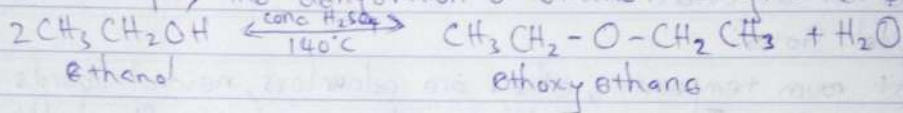 2 CH3 CH2OH ⇌ (conc H2SO4, 140°C) CH3 CH2 - O - CH2 CH3 + H2O
ethanol ethoxy ethane